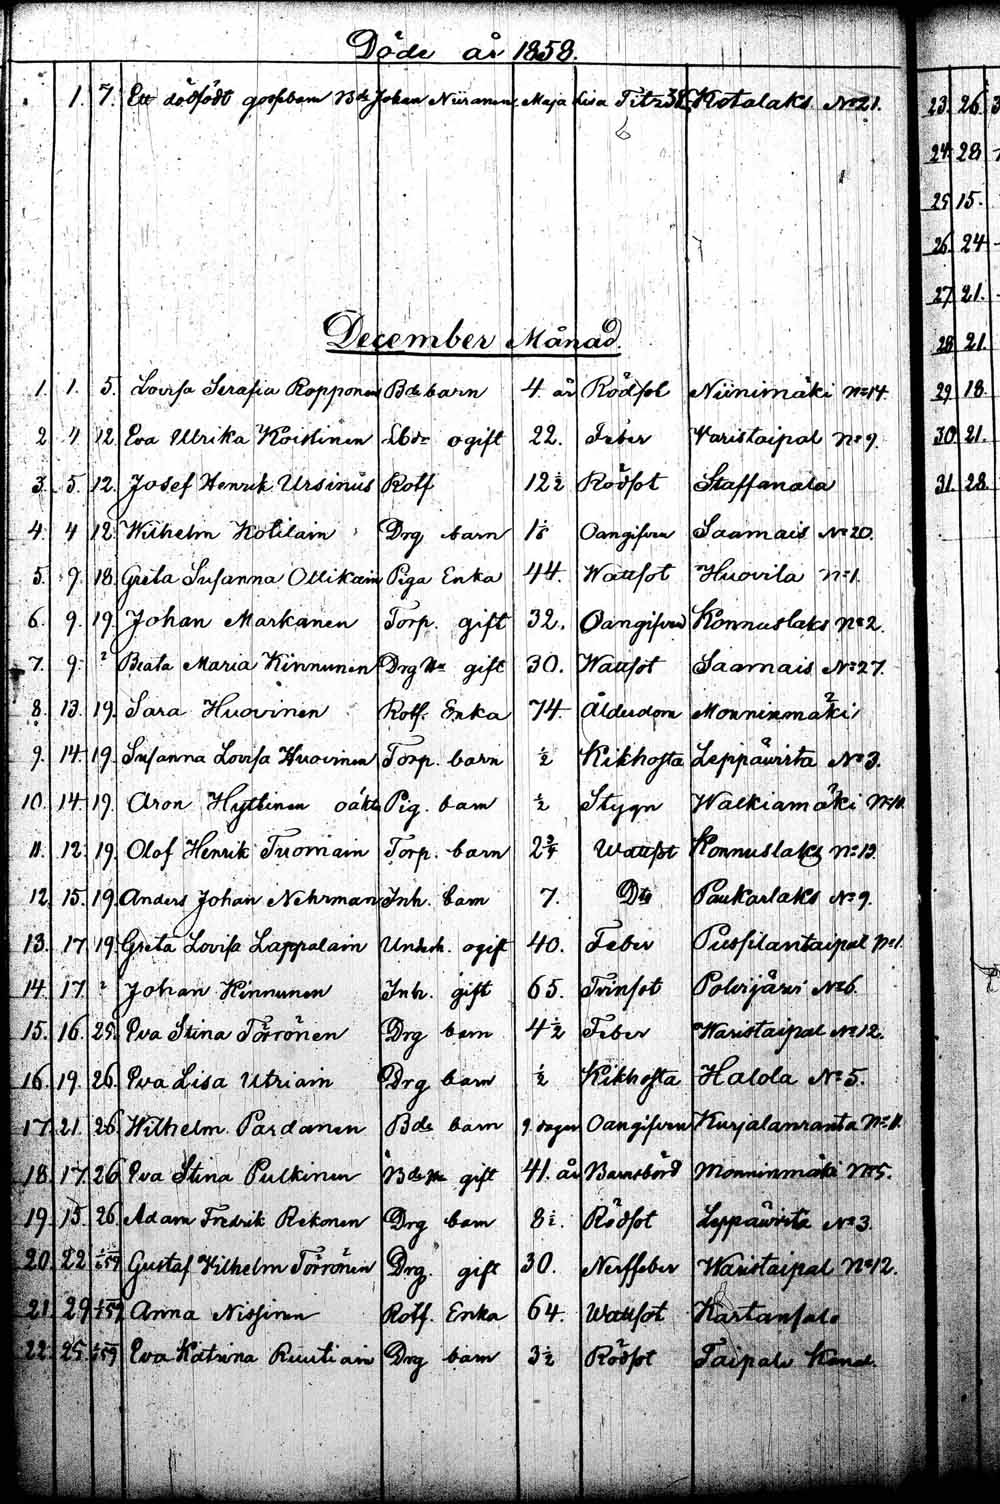 Döde år 1858.
1. 7. Ett dödfödt gossebarn Bds Johan Niiranen, Maja Lisa Titz 38 Kotalaks No 21.
6
December Månad.
1. 1. 5. Lovisa Serafia Ropponen Bds barn 4 år Rödsot Niinimäki No 14
2 4 12. Eva Ulrika Koistinen ogift 22. Feber Varistaipal No 9.
3. 5. 12. Josef Henrik Ursinus Rotf 12 1/2 Rödsot Staffanala
4. 4 12. Wilhelm Kotilain Drg barn Oangifven Saamais No 20.
5. 9. 18. Greta Susanna Ollikain Piga Enka 44. Wattsot Huovila No 1.
6. 9. 19. Johan Markanen Torp. gift 32. Oangifven Konnuslaks No 2.
7. 9. 2 Beata Maria Kinnunen Drg Hu gift 30. Wattsot Saamais No 27.
8. 13. 19. Sara Huovinen Rotf. Enka 74. Ålderdom Monninmäki 2
9. 14. 19. Susanna Lovisa Huovinen Torp. barn 1/2 Kikhosta Leppävirta No 3.
10. 14. 19. Aron Hyttinen oäkta Pig. barn 1/2 Stygn Walkiamäki
11. 12. 19. Olof Henrik Tuomain Torp. barn 2 3/4 Wattsot Konnuslaks No 13.
12. 15. 19. Anders Johan Nehrman Inh. barn 7. Dto Paukarlaks No 9.
13. 17. 19. Greta Lovisa Lappalain ogift 40. Feber Pussilantaipal No 1.
14. 17. 2 Johan Kinnunen Inh. gift 65. Tvinsot Polvijärvi No 6.
15. 16. 25. Eva Stina Törrönen Drg barn 4 1/2 Feber Waristaipal No 12.
16. 19. 26. Eva Lisa Utriain Drg barn 1/2 Kikhosta Halola No 5.
17. 21. 26. Wilhelm Pardanen Bds barn 9 dagar Oangifven Kurjalanranta No 11.
18. 17. 26. Eva Stina Pulkinen Bds Hu gift 41. år Barnsbörd Monninmäki No 5.
19. 15. 26. Adam Fredrik Rekonen Drg barn 8 1/2. Rödsot Leppävirta No 3.
20. 22 Gustaf Wilhelm Törrönen Drg. gift 30. Nerffeber Waristaipal No 12.
21. 29 Anna Nissinen Rotf. Enka 64. Wattsot
22. 25. Eva Katrina Ruutiain Drg barn 3 1/2 Rödsot Taipale Kanal.
23. 26.
24. 28
25 15.
26. 24
27 21.
28 21.
29 18.
30. 21.
31. 28.